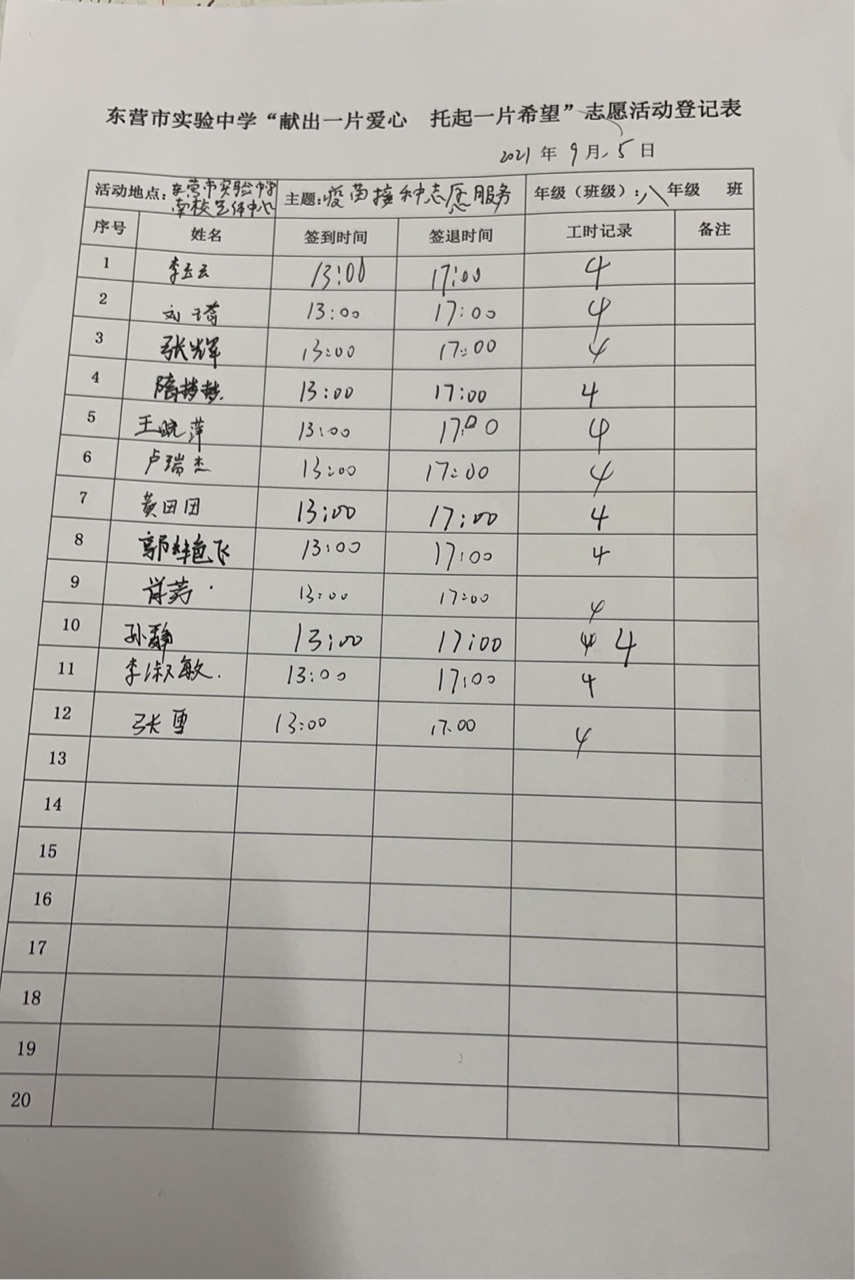 东营市实验中学“献出一片爱心 托起一片希望”志愿活动登记表
2021年9月5日
活动地点:东营市实验中学南校艺体中心 主题:疫苗接种志愿服务 年级(班级):八年级 班
序号 姓名 签到时间 签退时间 工时记录 备注
1 李玉云 13:00 17:00 4
2 刘 13:00 17:00 4
3 张辉 13:00 17:00 4
4 隋梦梦 13:00 17:00 4
5 王晓萍 13:00 17:00 4
6 卢瑞杰 13:00 17:00 4
7 黄田田 13:00 17:00 4
8 郭艳飞 13:00 17:00 4
9 13:00 17:00 4
10 孙静 13:00 17:00 4 4
11 李淑敏. 13:00 17:00 4
12 张雪 13:00 17.00 4
13
14
15
16
17
18
19
20